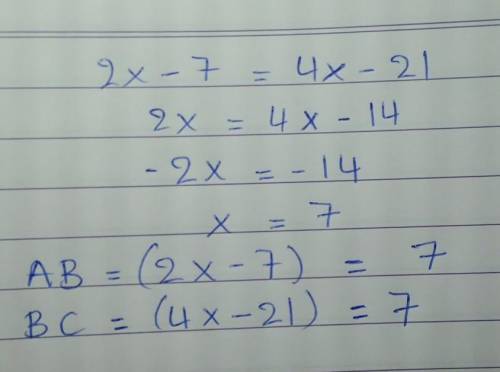 2x - 7 = 4x - 21
2x = 4x - 14
-2x = -14
x = 7
AB = (2x - 7) = 7
BC = (4x - 21) = 7